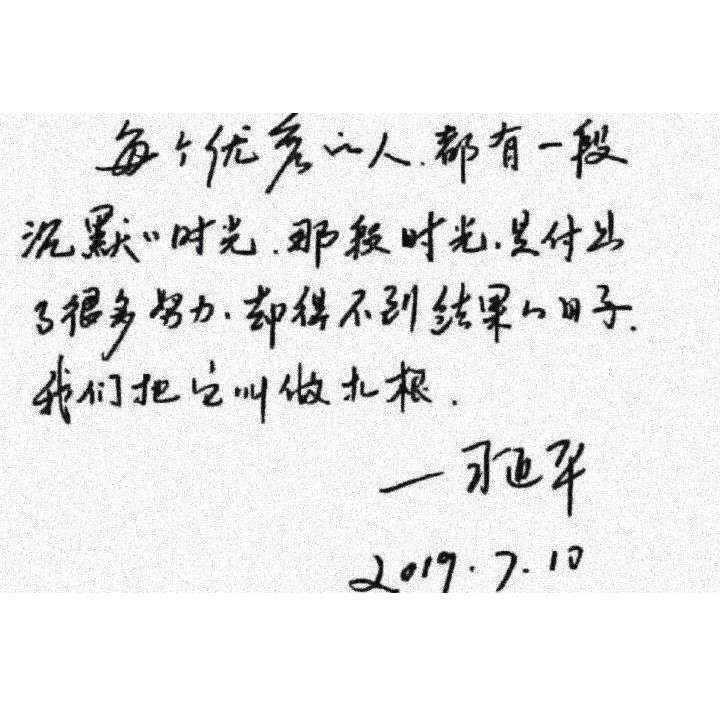 每个优秀的人,都有一段
沉默的时光.那段时光,是付出
了很多努力,却得不到结果的日子.
我们把它叫做扎根.
—习近平
2019.7.10